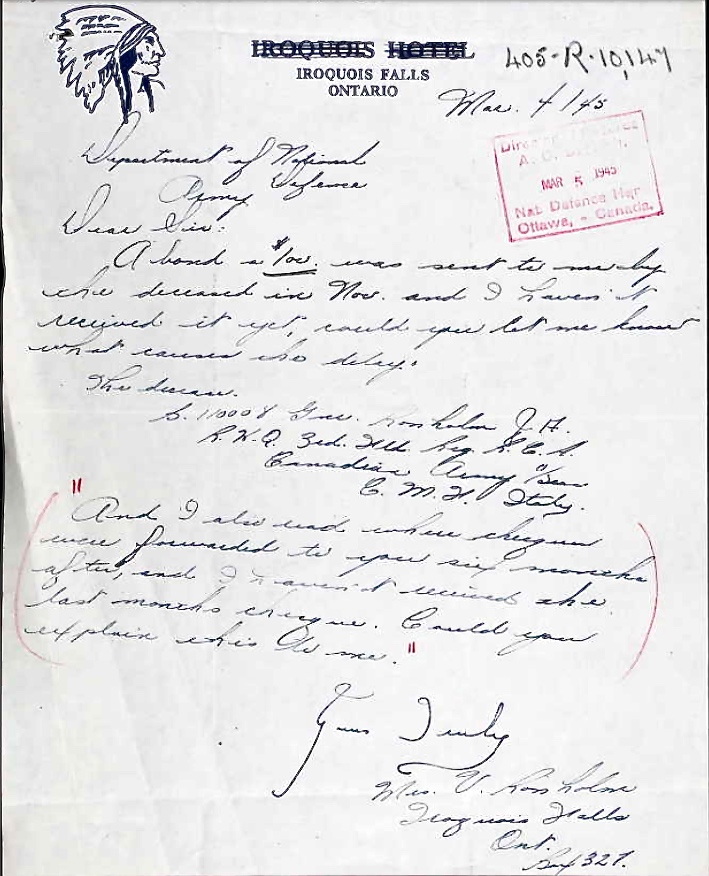 IROQUOIS HOTEL
IROQUOIS FALLS
ONTARIO
405-R-10,147
Mar. 4/45
MAR 5 1945
Nat. Defence Hqr
Ottawa, - Canada.
Department of National
Army Defence
Dear Sir:
A bond a $100. was sent to me by
the deceased in Nov. and I haven't
received it yet, could you let me know
what causes the delay.
The decease.
B. 110008 Gnr. Rossholm J.H.
R.H.Q. 3rd. Fld. Reg. R.C.A.
Canadian Army O/Seas
C. M. F. Italy.
"And I also read where cheques
were forwarded to you six months
after, and I haven't received the
last months cheque. Could you
explain this to me."
Yours Truly
Mrs. V. Rossholm
Iroquois Falls
Ont.
Box 327.